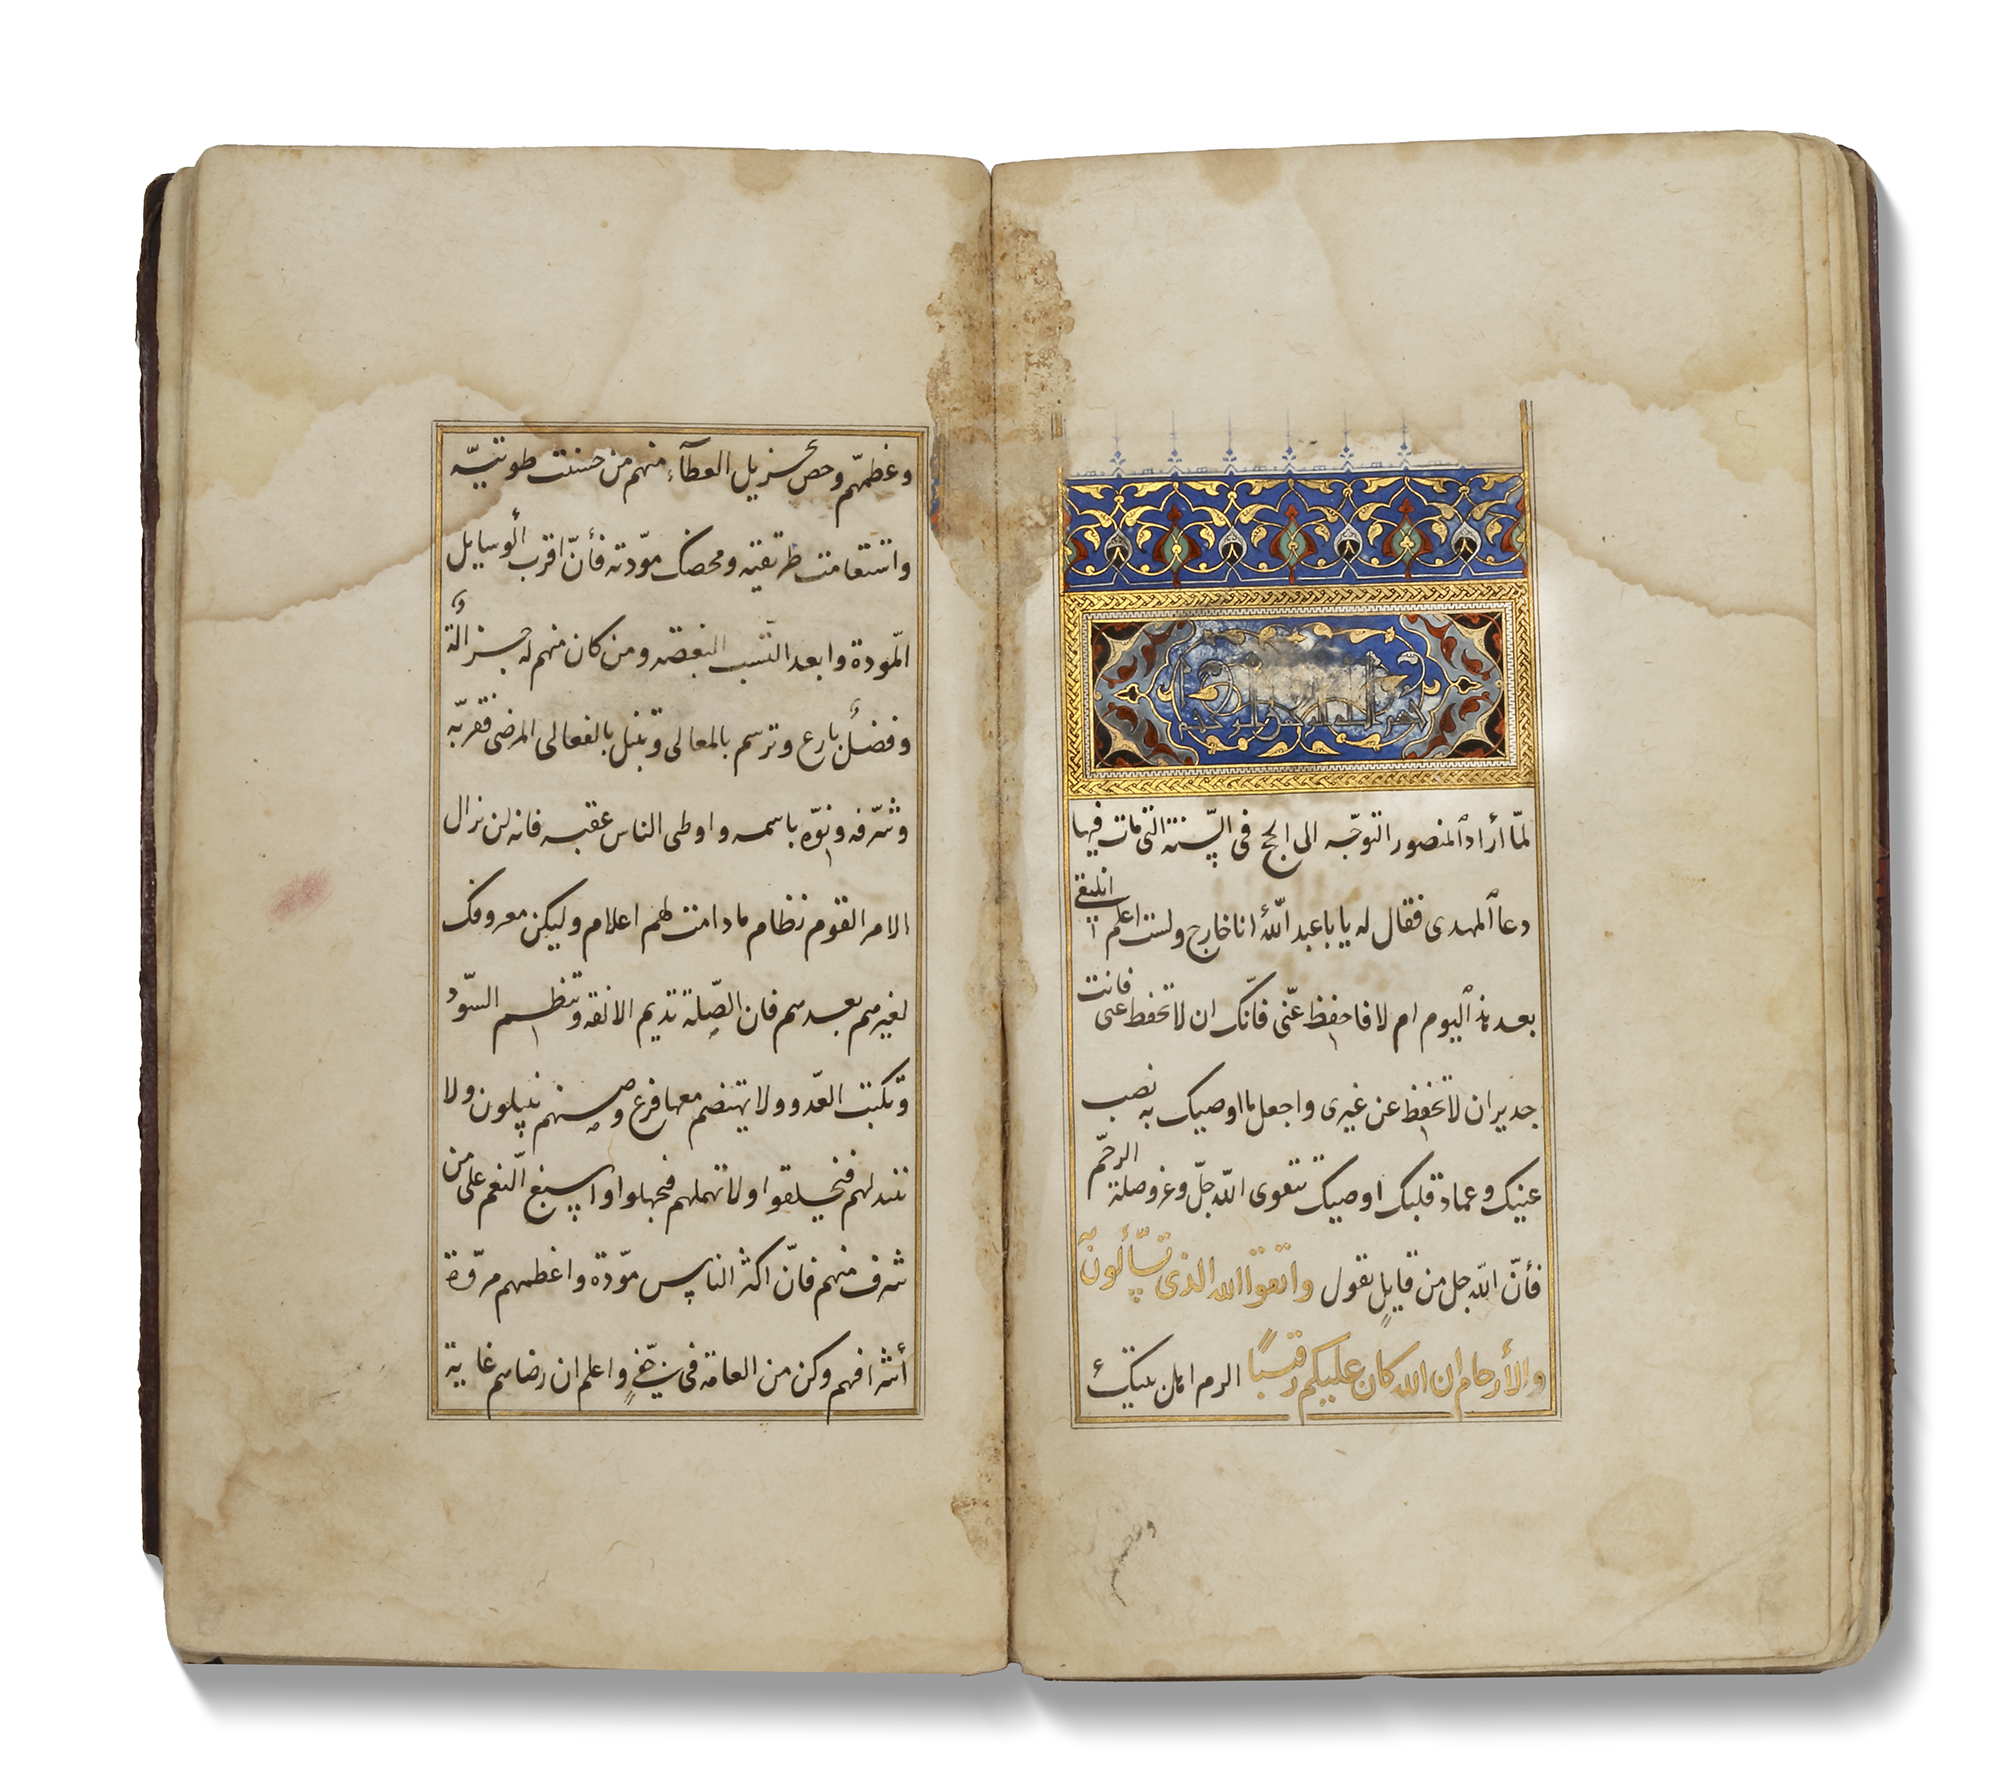 بسم الله الرحمن الرحيم
لمّا أراد المنصور التوجّه الى الحج فى السّنة التى مات فيها
دعا المهدى فقال له يا با عبد اللّه انا خارج ولست اعلم انلتقى
بعد هذا اليوم ام لا فاحفظ عنّى فانّك ان لا تحفظ عنى فانت
جدير ان لا تحفظ عن غيرى واجعل ما اوصيك به نصب
عينيك وعماد قلبك اوصيك بتقوى اللّه جلّ وعز وصلة الرحم
فأنّ اللّه جل من قايل يقول واتقوا الله الذى تسّألون به
والأرحام ان الله كان عليكم رقيبًا الزم اهل بيتك
وعظمهم وخص بجزيل العطآء منهم من حسنت طويتّه
واستقامت طريقته ومحضك مودّته فأنّ اقرب الوسايل
المّودة وابعد النسب البغضه ومن كان منهم له جزالة
وفضل بارع وترسم بالمعالى وتنبل بالفعالى المرضى فقربّه
وشرّفه ونوّه باسمه واوطى الناس عقبه فانه لن يزال
الامر القوم نظام ما دامت لهم اعلام وليكن معروفك
لغيرهم بعدهم فان الصّلة تديم الالفه وتنظم السّودد
وتكبت العدّو ولا يتهضم معها فرع وصنهم ينبلون ولا
تبتذلهم فيخلقوا ولا تهملهم فيجهلوا واسبغ النّعم على من
شرف منهم فانّ اكثر الناس مودّة واعظمهم مروّة
أشرافهم وكن من العامة فى واعلم ان رضاهم غاية